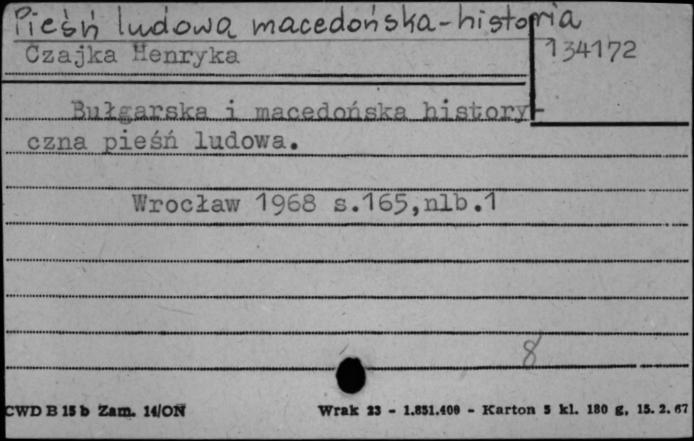 Pieśń ludowa macedońska-historia
Czajka Henryka
134172
Bułgarska i macedońska history-
czna pieśń ludowa.
Wrocław 1968 s.165,nlb.1
8
CWD B 15 b Zam. 14/ON Wrak 23 - 1.851.400 - Karton 5 kl. 180 g, 15. 2. 67